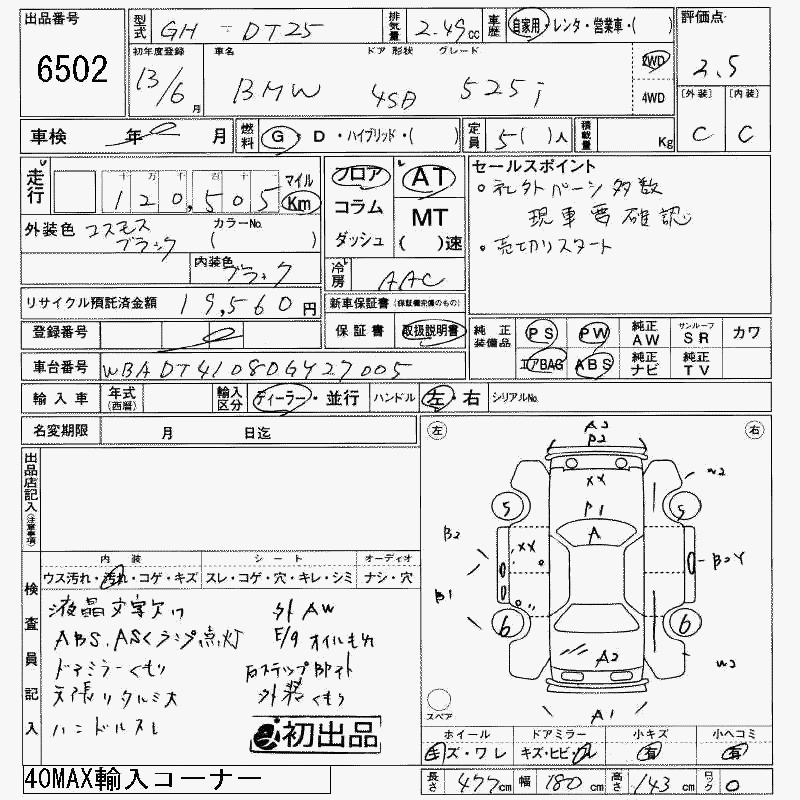 出品番号 6502
型式 GH - DT25 排気量 2.49cc 車歴 自家用・レンタ・営業車・( )
評価点 2.5
初年度登録 13/6月 車名 BMW ドア 形状 4SD グレード 525i 2WD 4WD
〔外装〕 C 〔内装〕 C
車検 年 月 燃料 G・D・ハイブリッド・( ) 定員 5( )人 積載量 Kg
走行 十万千百十 120,505 マイル Km
フロア コラム ダッシュ AT MT ( )速
セールスポイント
・社外パーツ多数
現車要確認
・売切りスタート
外装色 コスモスブラック カラーNo. ( )
内装色 ブラック
冷房 AAC
リサイクル預託済金額 19,560円
新車保証書(保証書完備のもの)
保証書 取扱説明書
登録番号
純正装備品 PS PW 純正AW サンルーフSR カワ
エアBAG ABS 純正ナビ 純正TV
車台番号 WBADT41080GY27005
輸入車 年式(西暦) 輸入区分 ディーラー・並行 ハンドル 左・右 シリアルNo.
名変期限 月 日迄
左 右
出品店記入(注意事項)
A3
B2
XX
P1
A
5 5
W2
B2
XX
B2Y
B1
6 6
A2
W3
A1
スペア
検査員記入
内装 シート オーディオ
ウス汚れ・汚れ・コゲ・キズ スレ・コゲ・穴・キレ・シミ ナシ・穴
液晶文字欠け
ABS、ASCランプ点灯
ドアミラーくもり
天張りタルミ大
ハンドルスレ
外AW
E/g オイルもれ
外装くもり
初出品
ホイール ドアミラー 小キズ 小ヘコミ
キズ・ワレ キズ・ヒビ・ワレ 有 有
40MAX輸入コーナー
長さ 477cm 幅 180cm 高さ 143cm ロック 0